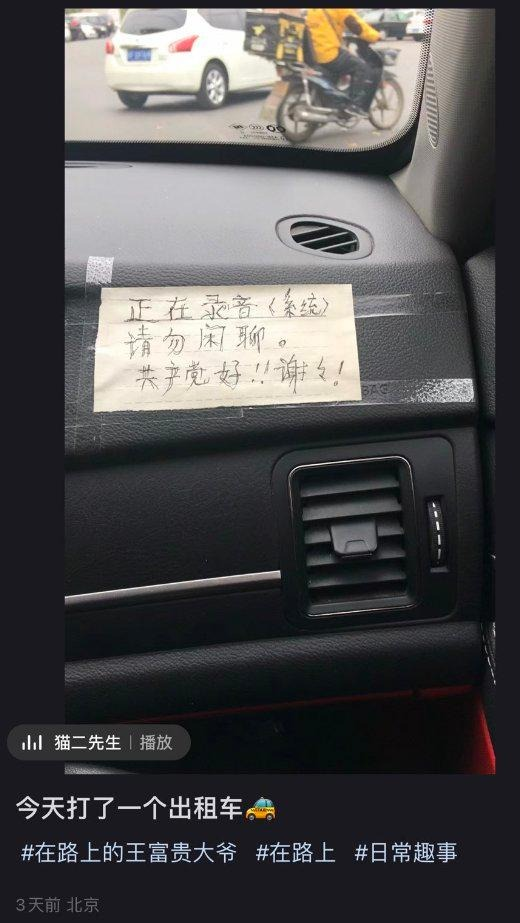 正在录音〈系统〉
请勿闲聊。
共产党好!!谢々!
猫二先生 | 播放
今天打了一个出租车🚕
#在路上的王富贵大爷 #在路上 #日常趣事
3天前 北京